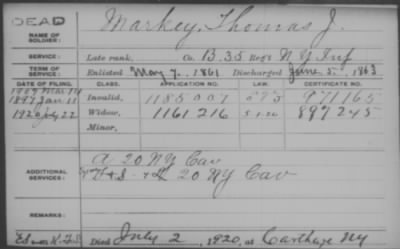 DEAD
NAME OF SOLDIER: Markey, Thomas J.
SERVICE: Late rank, Co. B. 35 Reg't N Y Inf
TERM OF SERVICE: Enlisted May 7, 1861 Discharged June 5, 1863
DATE OF FILING. CLASS. APPLICATION NO. LAW. CERTIFICATE NO.
Invalid, 1185007 971165
1897 Jan 11
1920 July 22 Widow, 1161216 897245
Minor,
ADDITIONAL SERVICES: A 20 NY Cav
F & S 20 NY Cav
REMARKS:
Died July 2, 1920, at Carthage NY